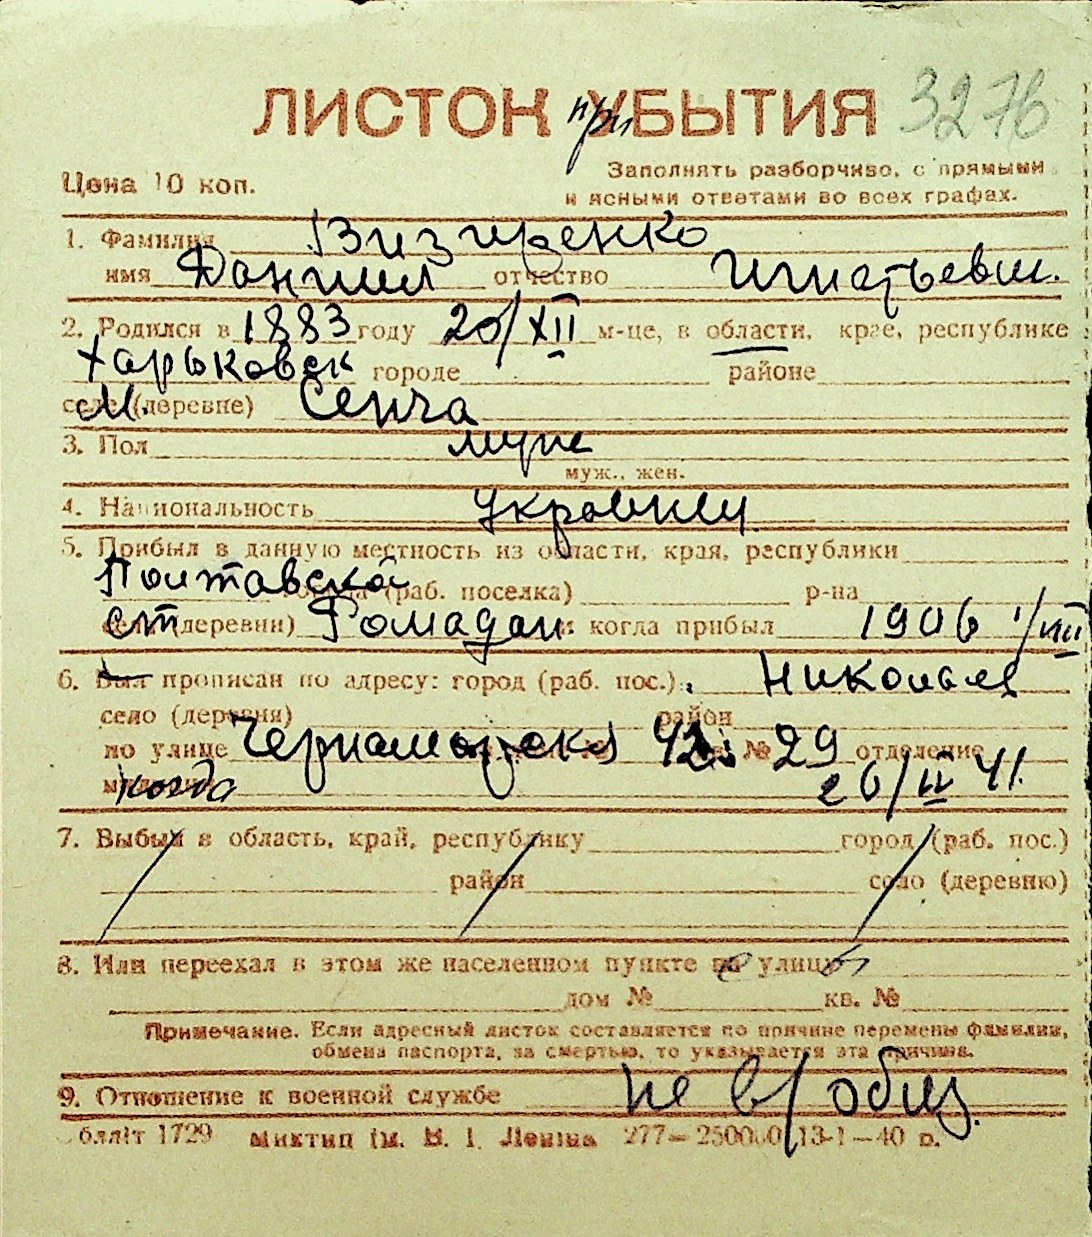 ЛИСТОК УБЫТИЯ при 3276
Цена 10 коп.
Заполнять разборчиво, с прямыми
и ясными ответами во всех графах.
1. Фамилия Визиренко
имя Даниил отчество Игнатьевич.
2. Родился в 1883 году 20/XII м-це, в области, крае, республике
Харьковск городе районе
селе (деревне) м. Сенча
3. Пол муж
муж., жен.
4. Национальность украинец
5. Прибыл в данную местность из области, края, республики
Полтавской (раб. поселка) р-на
ст (деревни) Ромадан и когда прибыл 1906 1/VIII
6. Был прописан по адресу: город (раб. пос.) Николаев
село (деревня) район
по улице Черноморск 42 № 29 отделение
когда 26/II 41.
7. Выбыл в область, край, республику город (раб. пос.)
район село (деревню)
8. Или переехал в этом же населенном пункте по улице
дом № кв. №
Примечание. Если адресный листок составляется по причине перемены фамилии,
обмена паспорта, за смертью, то указывается эта причина.
9. Отношение к военной службе не в/обяз.
бліт 1729 277— 13-1—40 р.